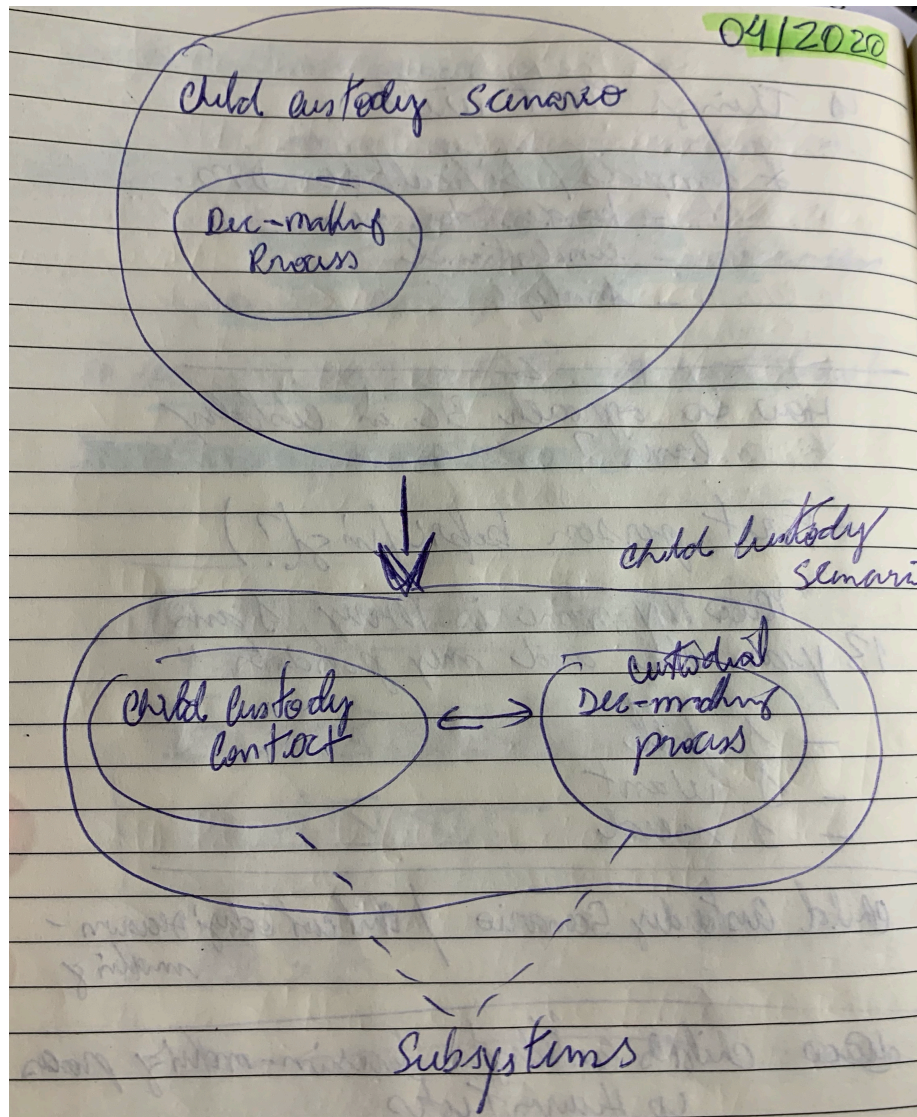 04/2020
Child custody scenario
Dec-making
Process
Child Custody
scenari
Child Custody
Context
custodial
Dec-making
process
Subsystems